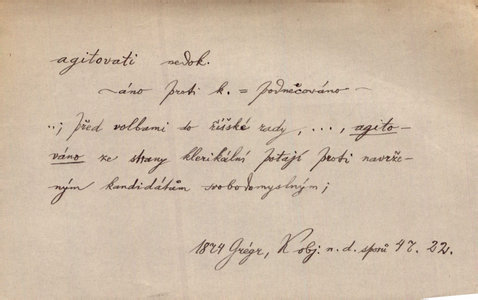 agitovati nedok.
~áno proti k. = podněcováno –
..; před volbami do říšské rady, ..., agito-
váno ze strany klerikální potají proti navrže-
ným kandidátům svobodomyslným;
1874 Grégr, K obj. n. d. sporů 47. 22.